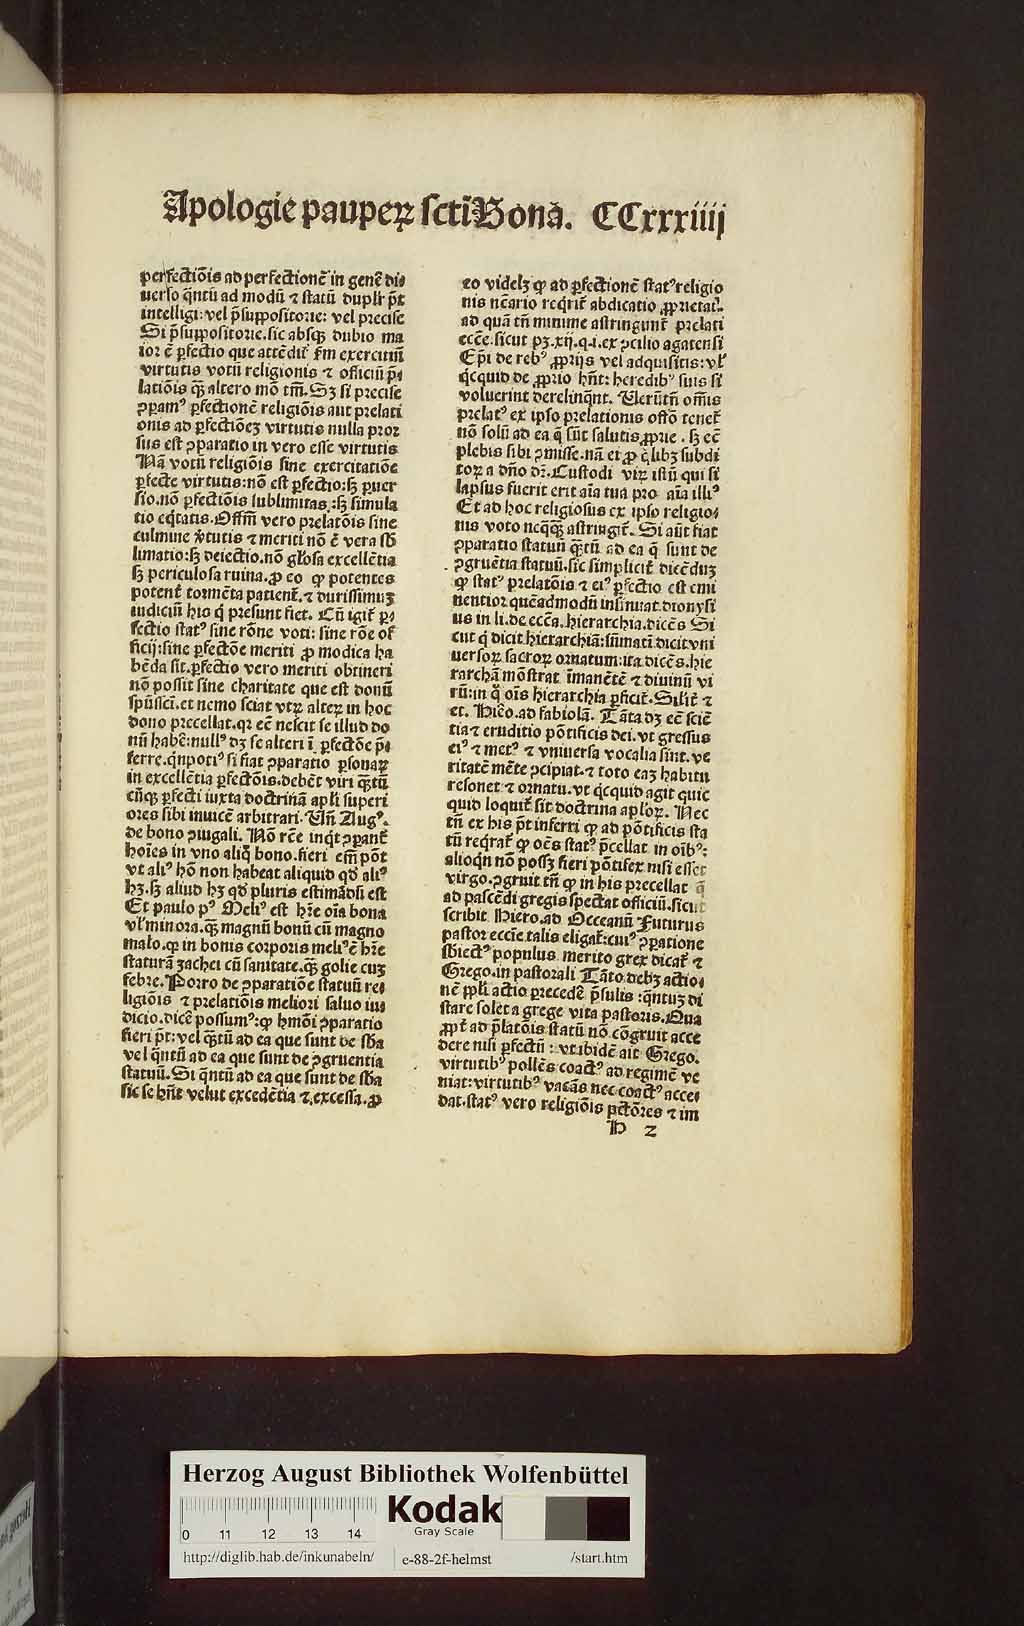 Apologie pauperꝝ sctī Bonā. CCxxxiiii
perfectiōis ad perfectionē in genē di⸗
uerso q̄ntū ad modū ⁊ statū duplr̄ p̄t
intelligi: vel p̄suppositorie: vel precise
Si p̄suppositorie. sic absqꝫ dubio ma
ior ē ꝑfectio que attēdit̄ ẜm exercitiū
virtutis votū religionis ⁊ officiū p̄⸗
latiōis qꝫ̄ altero mō tm̄. Sꝫ si precise
ꝯꝑamꝰ ꝑfectionē religiōis aut prelati
onis ad ꝑfectiōeꝫ virtutis nulla pror
sus est ꝯparatio in vero esse virtutis
Nā votū religiōis sine exercitatiōe
ꝑfecte virtutis: nō est ꝑfectio: sꝫ ꝑuer
sio. nō ꝑfectiōis sublimitas: sꝫ simula
tio eq̄tatis. Offm̄ vero prelatōis sine
culmine v̄tutis ⁊ meriti nō ē vera sb̄
limatio: sꝫ deiectio. nō gl̄osa excellētia
sꝫ periculosa ruina. ꝓ eo ꝙ potentes
potent̄ tormēta patient̄. ⁊ durissimuꝫ
iudiciū his q̄ presunt fiet. Cū igit̄ ꝑ⸗
fectio statꝰ sine rōne voti: sine rōe of
ficij: sine ꝑfectōe meriti ꝓ modica ha
bēda sit. ꝑfectio vero meriti obtineri
nō possit sine charitate que est donū
spūssc̄i. et nemo sciat vtꝝ alteꝝ in hoc
dono precellat. qꝛ eē nescit se illud do
nū habē: nullꝰ dꝫ se alteri ī ꝑfectōe p̄⸗
ferre. q̄npotiꝰ si fiat ꝯparatio ꝑsonaꝝ
in excellētia ꝑfectōis. debēt viri qꝫ̄tū
cūqꝫ ꝑfecti iuxta doctrinā apl̄i superi
ores sibi inuicē arbitrari. Vn̄ Augꝰ.
de bono ꝯiugali. Nō rc̄e inqͥt ꝯꝑant̄
hoīes in vno aliqͦ bono. fieri em̄ pōt
vt aliꝰ hō non habeat aliquid qd̄ aliꝰ
hꝫ. sꝫ aliud hꝫ qd̄ pluris estimādū est
Et paulo pꝰ Meliꝰ est hr̄e oīa bona
vl̓ minora. qꝫ̄ magnū bonū cū magno
malo. ꝙ in bonis corporis meliꝰ ē hr̄e
staturā zachei cū sanitate. qꝫ̄ golie cuꝫ
febre. Porro de ꝯparatiōe statuū re⸗
ligiōis ⁊ prelatiōis meliori saluo iu⸗
dicio. dicē possumꝰ: ꝙ hmōi ꝯparatio
fieri p̄t: vel qꝫ̄tū ad ea que sunt de sb̄a
vel q̄ntū ad ea que sunt de ꝯgruentia
statuū. Si q̄ntū ad ea que sunt de sb̄a
sic se hn̄t velut excedētia ⁊ excessa. ꝓ
eo videlꝫ ꝙ ad ꝑfectionē statꝰ religio
nis nēario reqͥrit̄ abdicatio ꝓprietat̄.
ad quā tn̄ minime astringunt̄ prelati
ecc̄e. sicut pꝫ. xij. q. i. ex ꝯcilio agatensi
Ep̄i de rebꝰ ꝓprijs vel adquisitis: vl̓
qͥcquid de ꝓprio hn̄t: heredibꝰ suis si
voluerint derelinqn̄t. Verūtn̄ om̄is
prelatꝰ ex ipso prelationis offō tenet̄
nō solū ad ea q̄ sūt salutis ꝓprie. sꝫ eē
plebis sibi ꝯmisse. nā et ꝓ qͦlibꝫ subdi
toꝝ a dn̄o dꝛ̄. Custodi viꝝ istū qui si
lapsus fuerit erit aīa tua pro aīa illiꝰ
Et ad hoc religiosus ex ipso religio⸗
nis voto neqꝫqꝫ̄ astringit̄. Si aūt fiat
ꝯparatio statuū qꝫ̄tū ad ea q̄ sunt de
ꝯgruētia statuū. sic simplicit̄ dicēduꝫ
ꝙ statꝰ prelatōis ⁊ eiꝰ ꝑfectio est emi
nentior quēadmodū insinuat dionysi
us in li. de ecc̄a. hierarchia. dicēs Si
cut q̄ dicit hierarchiā: sūmatī dicit vni
uersoꝝ sacroꝝ ornatum: ita dicēs. hie
rarchā mōstrat īmanētē ⁊ diuinū vi
rū: in qͦ oīs hierarchia ꝑficit̄. Silit̄ ⁊
et. Hiero. ad fabiolā. Tāta dꝫ eē sciē
tia ⁊ eruditio pōtificis dei. vt gressus
eiꝰ ⁊ metꝰ ⁊ vniuersa vocalia sint. ve
ritatē mēte ꝯcipiat. ⁊ toto eaꝫ habitu
resonet ⁊ ornatu. vt qͥcquid agit quic
quid loquit̄ sit doctrina apl̄oꝝ. Nec
tn̄ ex his p̄t inferri ꝙ ad pōtificis sta
tū reqͥrat̄ ꝙ oēs statꝰ p̄cellat in oībꝰ:
alioqͥn nō possꝫ fieri pōtifex nisi esset
virgo. ꝯgruit tn̄ ꝙ in his precellat q̄
ad pascēdi gregis spectat officiū. sicut
scribit Hiero. ad Occeanū Futurus
pastor ecc̄ie talis eligat̄: cuiꝰ ꝯꝑatione
sb̄iectꝰ populus merito grex dicat̄ ⁊
Grego. in pastorali Tāto debꝫ actio⸗
nē ppl̄i actio precedē p̄sulis: q̄ntuꝫ di
stare solet a grege vita pastoris. Qua
ꝓpt̄ ad p̄latōis statū nō cōgruit acce
dere nisi ꝑfectū: vt ibidē ait Grego.
virtutibꝰ pollēs coactꝰ ad regimē ve
niat: virtutibꝰ vacās nec coactꝰ acce⸗
dat. statꝰ vero religiōis pctōres ⁊ im
H 2
Herzog August Bibliothek Wolfenbüttel
0 11 12 13 14
Kodak
Gray Scale
http://diglib.hab.de/inkunabeln/ e-88-2f-helmst /start.htm